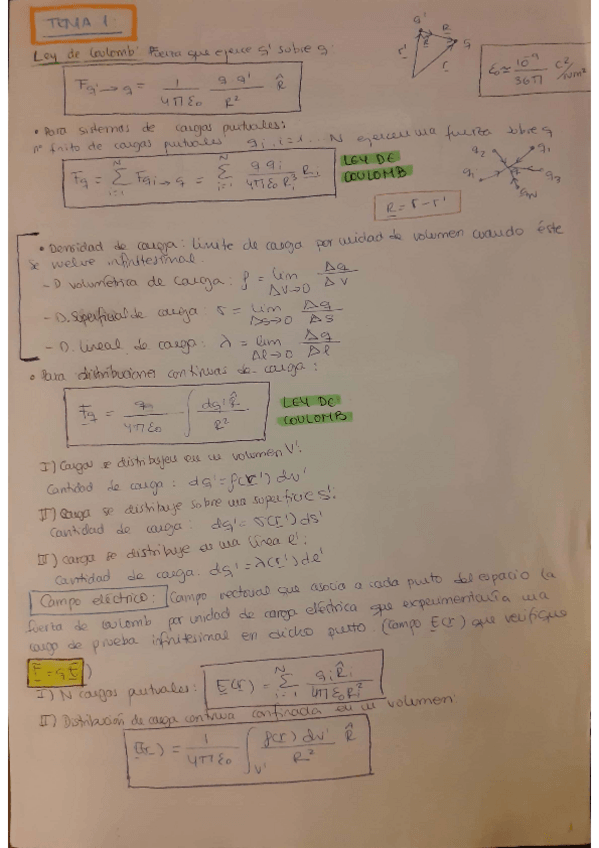 TEMA 1:
Ley de Coulomb: Fuerza que ejerce q' sobre q:
F q'→q = 1/(4πε0) q q'/R² R̂
q' R q r' r
ε0 ≃ 10⁻⁹/36π C²/Nm²
• Para sistemas de cargas puntuales:
nº finito de cargas puntuales qi, i=1... N ejercen una fuerza sobre q
Fq = Σ(i=1, N) Fqi→q = Σ(i=1, N) q qi/(4πε0 Ri³) Ri
LEY DE
COULOMB
q2 q1 qi q3 qN
R = r - r'
• Densidad de carga: límite de carga por unidad de volumen cuando éste
se vuelve infinitesimal.
- D volumétrica de carga: ρ = lim ΔV→0 Δq/ΔV
- D. Superficial de carga: σ = lim ΔS→0 Δq/ΔS
- D. Lineal de carga: λ = lim Δl→0 Δq/Δl
• Para distribuciones continuas de carga:
Fq = q/(4πε0) ∫ dq' R̂/R²
LEY DE
COULOMB
I) Cargas se distribuyen en un volumen V':
Cantidad de carga: dq' = ρ(r') dv'
II) Carga se distribuye sobre una superficie S':
Cantidad de carga: dq' = σ(r') ds'
III) carga se distribuye en una línea l':
Cantidad de carga. dq' = λ(r') dl'
Campo eléctrico: Campo vectorial que asocia a cada punto del espacio la
fuerza de coulomb por unidad de carga eléctrica que experimentaría una
carga de prueba infinitesimal en dicho punto. (Campo E(r) que verifique
F = qE)
I) N cargas puntuales: E(r) = Σ(i=1, N) qi R̂i/(4πε0 Ri²)
II) Distribución de carga continua confinada en un volumen:
E(r) = 1/(4πε0) ∫V' ρ(r) dv'/R² R̂